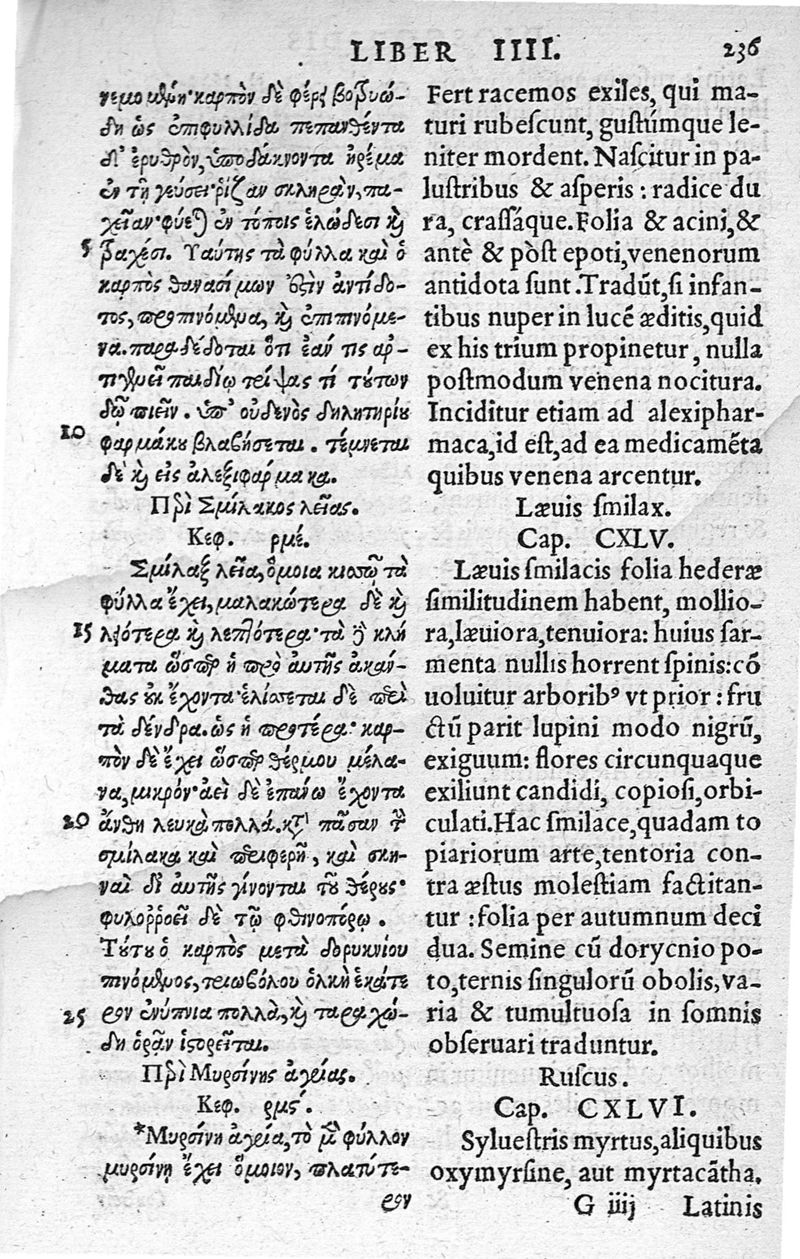 LIBER IIII. 236
νεμομένη· καρπὸν δὲ φέρει βοτρυώ-
δη ὡς ἐπιφυλλίδα πεπανθέντα
δ' ἐρυθρὸν, ὑποδάκνοντα ἠρέμα
ἐν τῇ γεύσει· ῥίζαν σκληρὰν, πα-
χεῖαν· φύεται ἐν τόποις ἑλώδεσι καὶ
5 τραχέσι. Ταύτης τὰ φύλλα καὶ ὁ
καρπὸς θανασίμων ἐστὶν ἀντίδο-
τος, προπινόμενα, καὶ ἐπιπινόμε-
να. παραδέδοται ὅτι ἐάν τις ἀρ-
τιγενεῖ παιδίῳ τρίψας τὶ τούτων
δῷ πιεῖν. ὑπ' οὐδενὸς δηλητηρίου
10 φαρμάκου βλαβήσεται. τέμνεται
δὲ καὶ εἰς ἀλεξιφάρμακα.
Περὶ Σμίλακος λείας.
Κεφ. ρμέ.
Σμίλαξ λεῖα, ὅμοια κισσῷ τὰ
φύλλα ἔχει, μαλακώτερα δὲ καὶ
15 λειότερα καὶ λεπτότερα· τὰ δὲ κλή
ματα ὥσπερ ἡ πρὸ αὐτῆς ἀκάν-
θας οὐκ ἔχοντα· ἑλίσσεται δὲ περὶ
τὰ δένδρα. ὡς ἡ προτέρα· καρ-
πὸν δὲ ἔχει ὥσπερ θέρμου μέλα-
να, μικρόν· ἀεὶ δὲ ἐπάνω ἔχοντα
20 ἄνθη λευκὰ πολλά. κατὰ πᾶσαν τὴν
σμίλακα καὶ περιφερῆ, καὶ σκη-
ναὶ δι' αὐτῆς γίνονται τοῦ θέρους·
φυλοῤῥοεῖ δὲ τῷ φθινοπώρῳ.
Τούτου ὁ καρπὸς μετὰ δορυκνίου
πινόμενος, τριωβόλου ὁλκὴ ἑκάτε
25 ρον ἐνύπνια πολλὰ, καὶ ταραχώ-
δη ὁρᾷν ἱστορεῖται.
Περὶ Μυρσίνης ἀγρίας.
Κεφ. ρμϛ'.
*Μυρσίνη ἀγρία, τὸ μὲν φύλλον
μυρσίνῃ ἔχει ὅμοιον, πλατύτε-
ρον
Fert racemos exiles, qui ma-
turi rubeſcunt, guſtúmque le-
niter mordent. Naſcitur in pa-
luſtribus & aſperis: radice du
ra, craſſáque. Folia & acini, &
antè & pòſt epoti, venenorum
antidota ſunt. Tradūt, ſi infan-
tibus nuper in lucē æditis, quid
ex his trium propinetur, nulla
poſtmodum venena nocitura.
Inciditur etiam ad alexiphar-
maca, id eſt, ad ea medicamēta
quibus venena arcentur.
Læuis ſmilax.
Cap. CXLV.
Læuis ſmilacis folia hederæ
ſimilitudinem habent, mollio-
ra, læuiora, tenuiora: huius ſar-
menta nullis horrent ſpinis: cō
uoluitur arborib⁹ vt prior: fru
ctū parit lupini modo nigrū,
exiguum: flores circunquaque
exiliunt candidi, copioſi, orbi-
culati. Hac ſmilace, quadam to
piariorum arte, tentoria con-
tra æſtus moleſtiam factitan-
tur: folia per autumnum deci
dua. Semine cū dorycnio po-
to, ternis ſingulorū obolis, va-
ria & tumultuoſa in ſomnis
obſeruari traduntur.
Ruſcus.
Cap. CXLVI.
Sylueſtris myrtus, aliquibus
oxymyrſine, aut myrtacātha.
G iiij Latinis